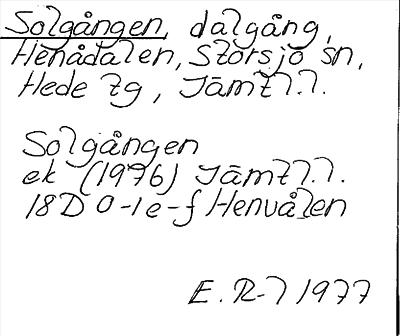 Solgången, dalgång,
Henådalen, Storsjö sn,
Hede tg, Jämtl.l.
Solgången
ek (1976) Jämtl.l.
18D 0-1e-f Henvålen
E. R-l 1977